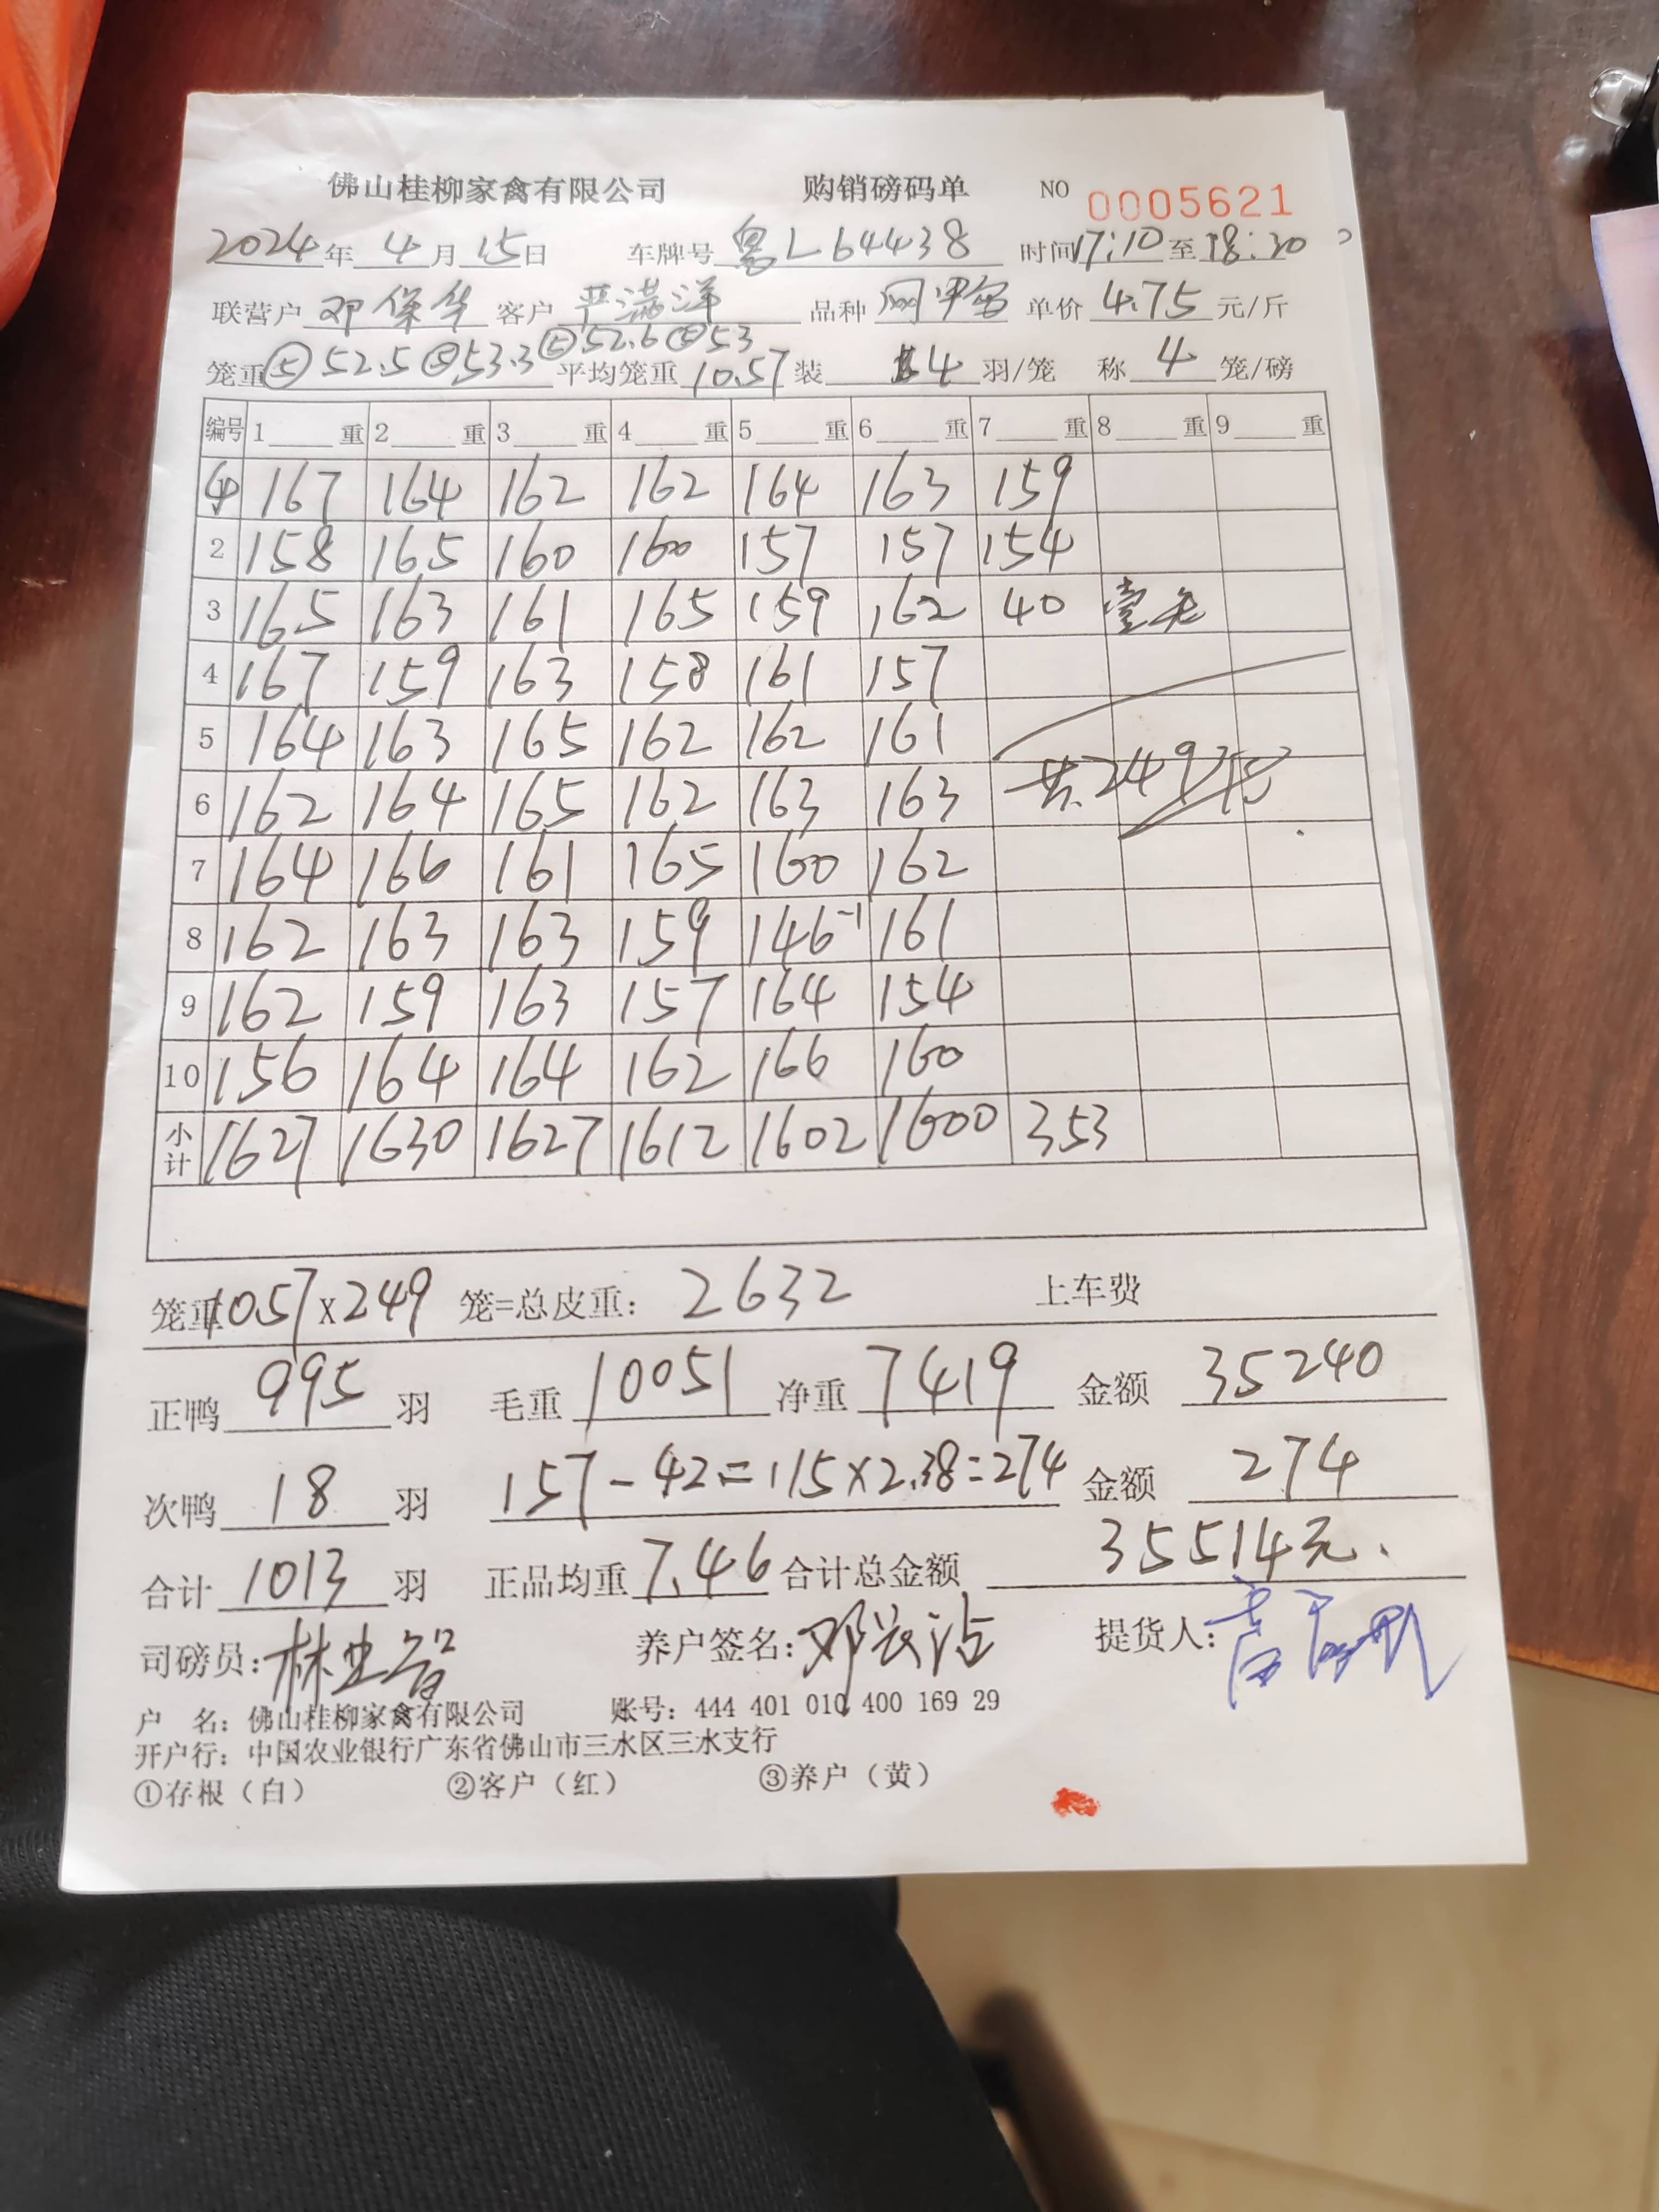 佛山桂柳家禽有限公司 购销磅码单 NO 0005621
2024年4月15日 车牌号 粤L64438 时间17:10至18:30
联营户 邓保华 客户 严满洋 品种 单价 4.75 元/斤
笼重⑤52.5⑤53.3⑤52.6⑤53 平均笼重 10.57 装 4 羽/笼 称 4 笼/磅
编号 1 重 2 重 3 重 4 重 5 重 6 重 7 重 8 重 9 重
167 164 162 162 164 163 159
2 158 165 160 160 157 157 154
3 165 163 161 165 159 162 40 壹笼
4 167 159 163 158 161 157
5 164 163 165 162 162 161
6 162 164 165 162 163 163 共249笼
7 164 166 161 165 160 162
8 162 163 163 159 146-1 161
9 162 159 163 157 164 154
10 156 164 164 162 166 160
小计 1627 1630 1627 1612 1602 1600 353
笼重10.57x249 笼=总皮重： 2632 上车费
正鸭 995 羽 毛重 10051 净重 7419 金额 35240
次鸭 18 羽 157-42=115×2.38=274 金额 274
合计 1013 羽 正品均重 7.46 合计总金额 35514元.
司磅员： 林业智 养户签名： 提货人：
户 名：佛山桂柳家禽有限公司 账号：444 401 010 400 169 29
开户行：中国农业银行广东省佛山市三水区三水支行
①存根（白） ②客户（红） ③养户（黄）